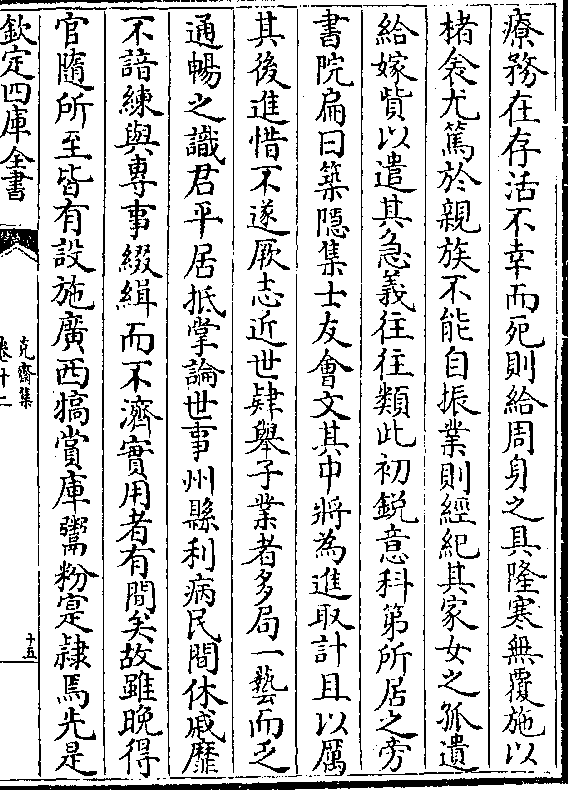 療務在存活不幸而死則給周身之具隆寒無覆施以
楮衾尤篤於親族不能自振業則經紀其家女之孤遺
給嫁貲以遣其急義往往類此初鋭意科第所居之旁
書院扁曰築隱集士友會文其中將為進取計且以厲
其後進惜不遂厥志近世肄舉子業者多局一藝而乏
通暢之識君平居抵掌論世事州縣利病民間休戚靡
不諳練與專事綴緝而不濟實用者有間矣故雖晚得
官隨所至皆有設施廣西犒賞庫鬻粉寔隷焉先是
欽定四庫全書
克齋集
卷十二
十五